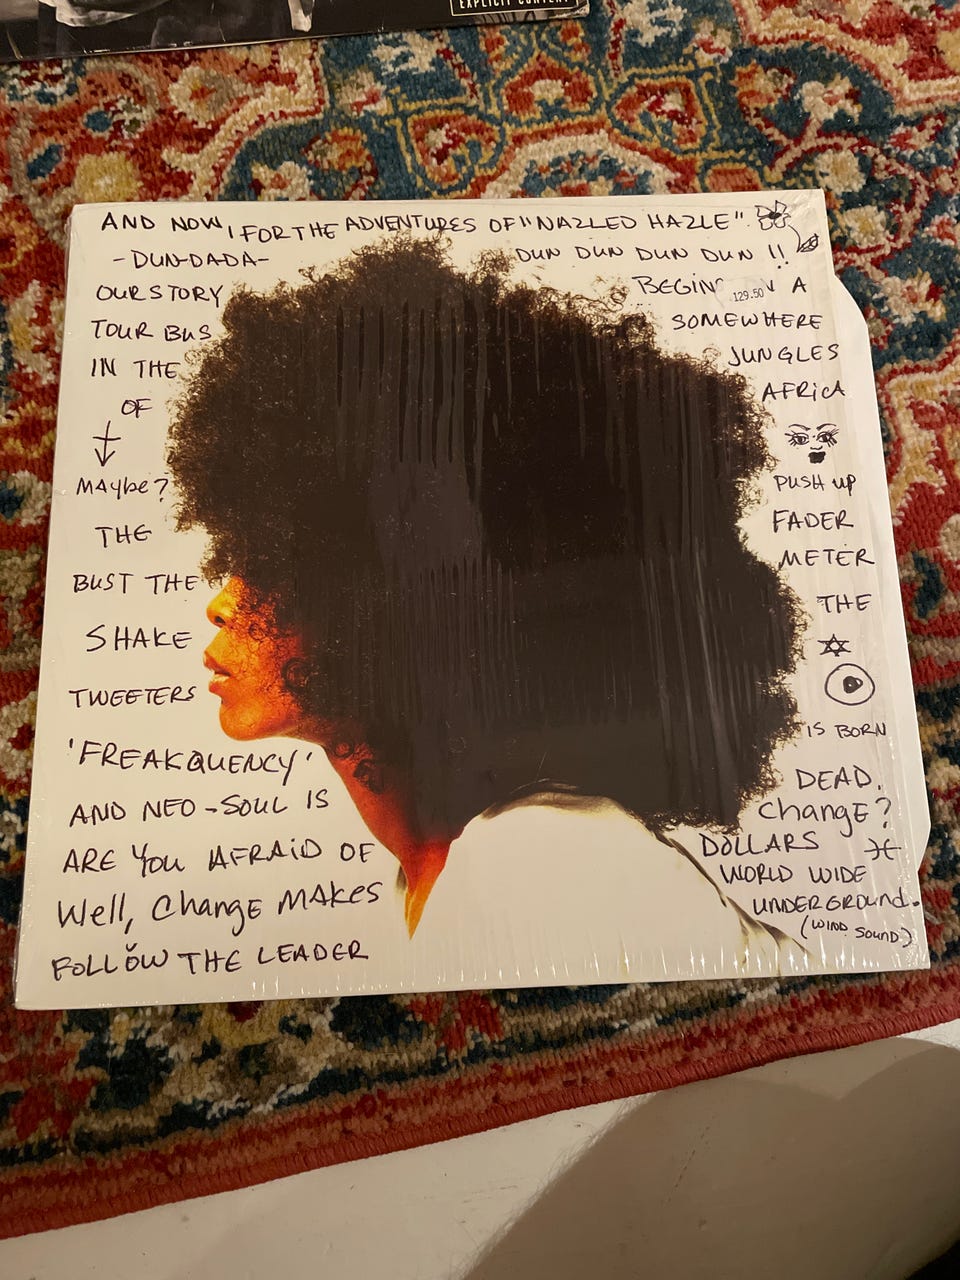 EXPLICIT CONTENT
AND NOW, FOR THE ADVENTURES OF "NAZLED HAZLE"
-DUN-DADA- DUN DUN DUN DUN !!
OUR STORY BEGINS A
129.50
TOUR BUS SOMEWHERE
IN THE JUNGLES
OF AFRICA
MAYbe? PUSH UP
THE FADER
BUST THE METER
SHAKE THE
TWEETERS
'FREAKQUENCY' IS BORN
AND NEO-SOUL IS DEAD.
ARE YOU AFRAID OF Change?
Well, Change MAKES DOLLARS
FOLLOW THE LEADER WORLD WIDE
UNDERGROUND.
(WIND SOUND)